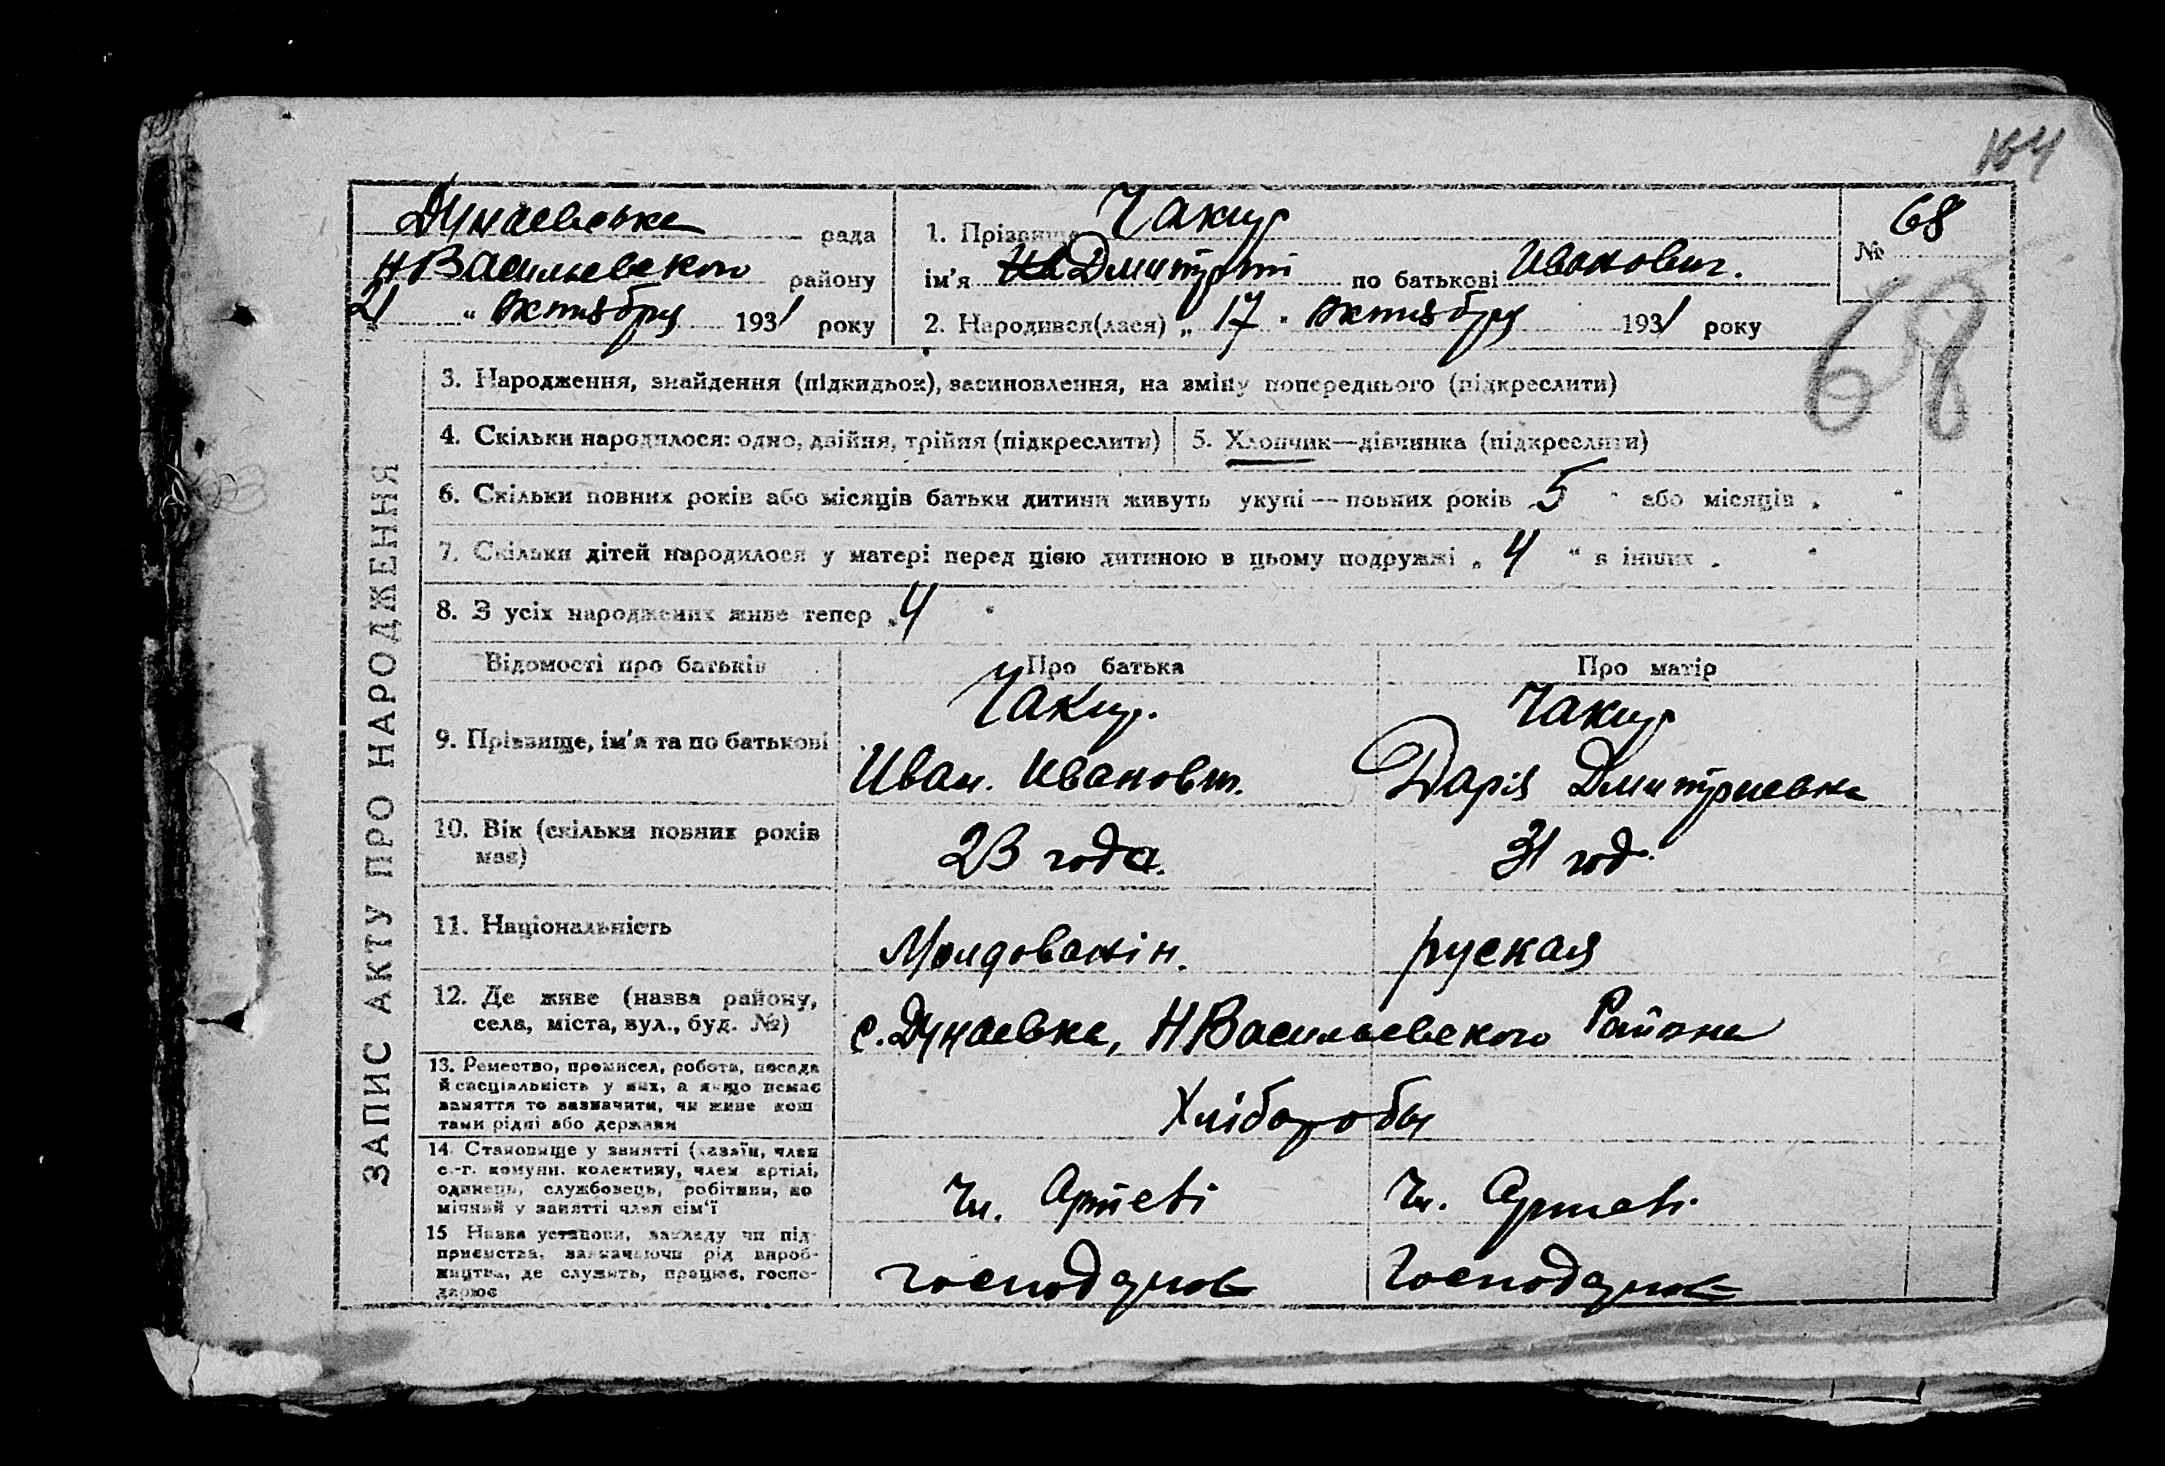 164
Дунаевська рада
НВасильевского району
„21“ Октября 1931 року
1. Прізвище Чакир
ім'я Дмитрій по батькові Иванович.
2. Народився(лася) „17“ Октября 1931 року
№ 68
68
ЗАПИС АКТУ ПРО НАРОДЖЕННЯ
3. Народження, знайдення (підкидьок), засиновлення, на зміну попереднього (підкреслити)
4. Скільки народилося: одно, двійня, трійня (підкреслити)
5. Хлопчик—дівчинка (підкреслити)
6. Скільки повних років або місяців батьки дитини живуть укупі—повних років „5“ або місяців „ “
7. Скільки дітей народилося у матері перед цією дитиною в цьому подружжі „4“ в інших „ “
8. З усіх народжених живе тепер „4“
Відомості про батьків Про батька Про матір
9. Прізвище, ім'я та по батькові
Чакир.
Иван. Иванович.
Чакир
Дарія Дмитриевна
10. Вік (скільки повних років
має)
23 года.
31 год.
11. Національність
Молдованін.
руская
12. Де живе (назва району,
села, міста, вул., буд. №)
с. Дунаевка, НВасильевского Района
13. Ремество, промисел, робота, посада
й спеціяльність у них, а якщо немає
заняття то зазначити, чи живе кош
тами рідні або держави
Хлібороби
14. Становище у занятті (хазяїн, член
с.-г. комуни, колективу, член артілі,
одинець, службовець, робітник, по
мічний у занятті член сім'ї
Чл. Артеві
Чл. Артеві.
15 Назва установи, закладу чи під-
приємства, зазначаючи рід вироб-
ництва, де служить, працює, госпо-
дарює
господаров
Господаров